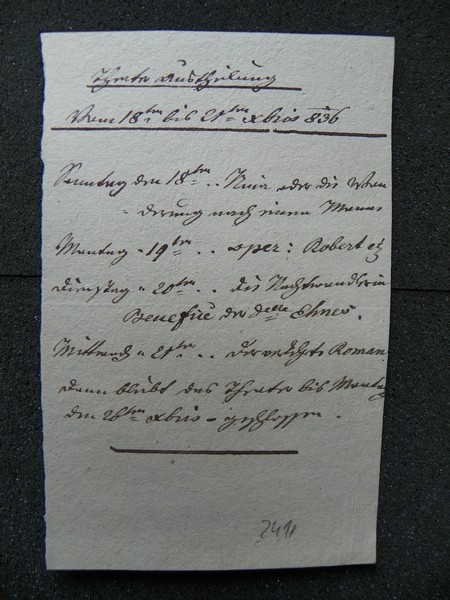 Theater Austheilung
Vom 18ten bis 21ten Xbris 836
Sonntag den 18ten .. oder die Wan
derung nach einem Manne
Montag " 19ten .. Oper: Robert etz
Dienstag " 20ten .. Die Nachtwandlerin
Benefice der Dlle Ehnes.
Mittwoch " 21ten .. Der verkehrte Roman
dann bleibt das Theater bis Montag
den 26ten Xbris - geschlossen.
2411